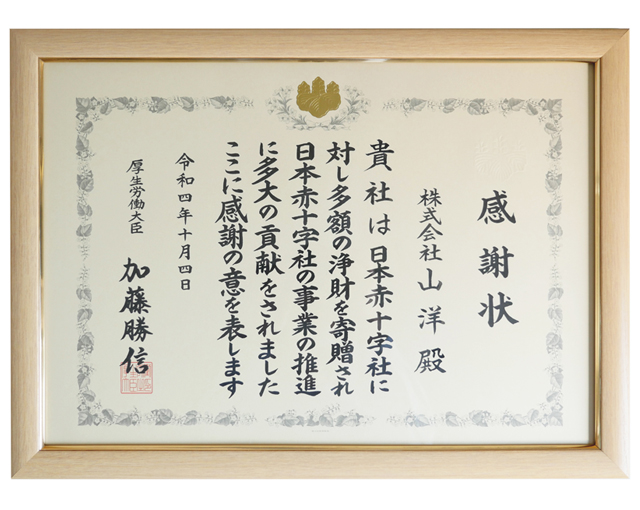 感謝状
株式会社山洋殿
貴社は日本赤十字社に
対し多額の浄財を寄贈され
日本赤十字社の事業の推進
に多大の貢献をされました
ここに感謝の意を表します
令和四年十月四日
厚生労働大臣 加藤勝信